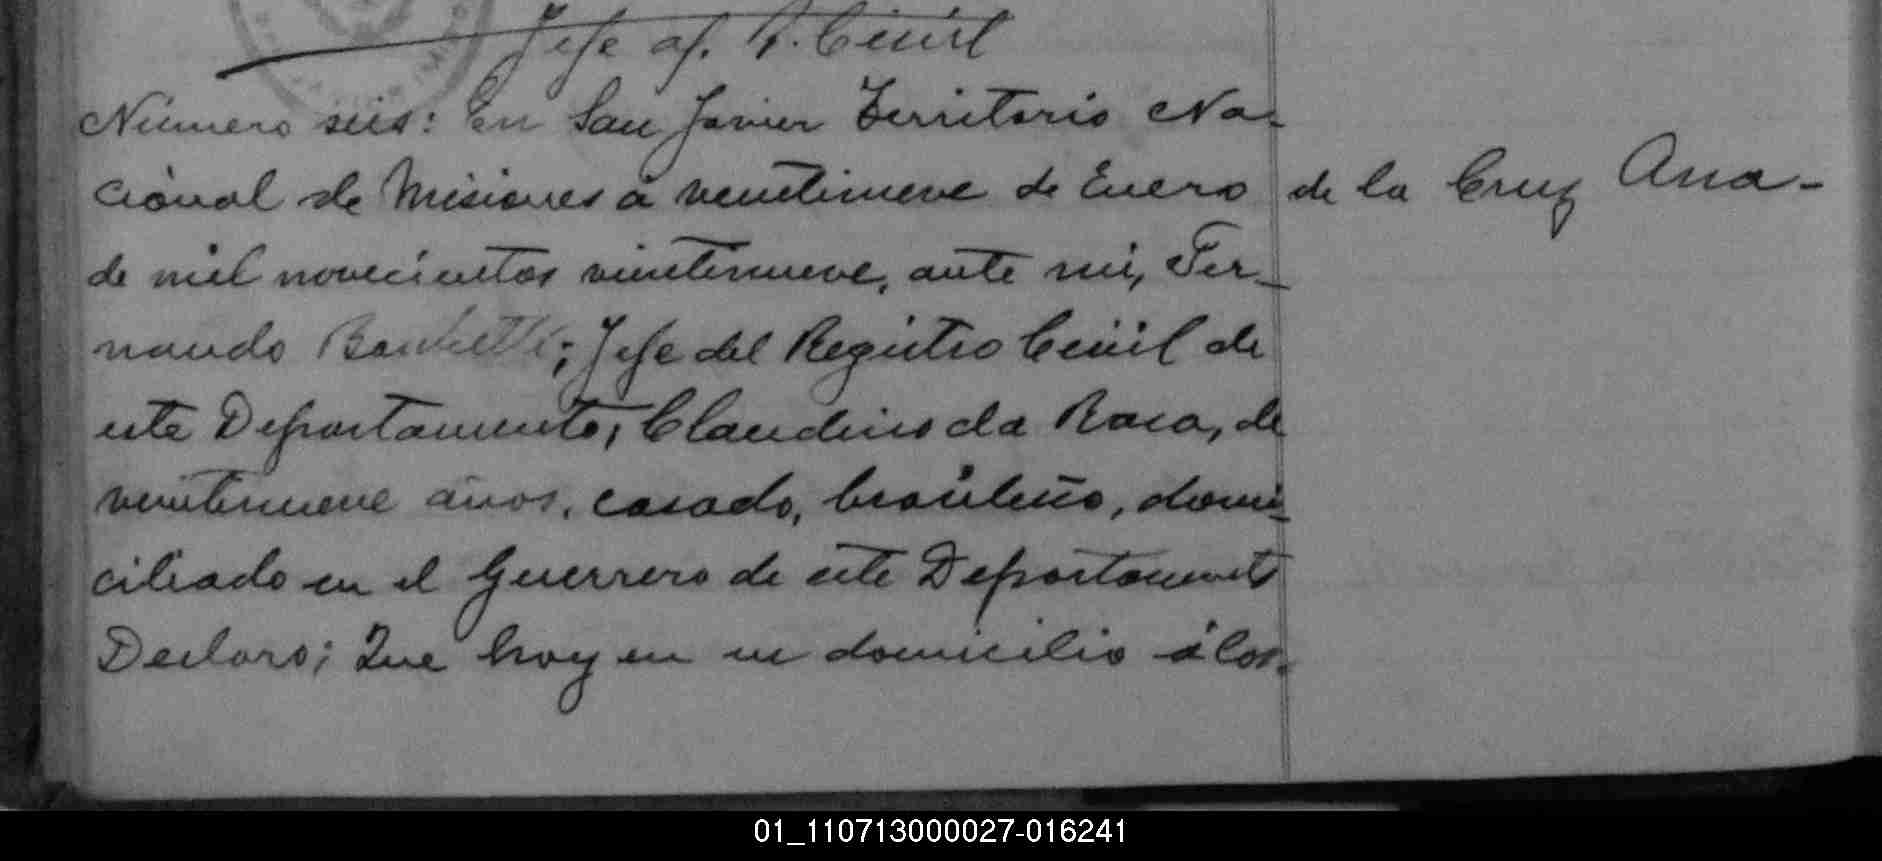 Jefe of. R. Civil
Número seis: En San Javier Territorio Na-
cional de Misiones á veintinueve de Enero
de la Cruz Ana-
de mil novecientos veintinueve, ante mi, Fer-
nando ; Jefe del Registro Civil de
este Departamento, Claudino da Rosa, de
veintinueve años, casado, brasileño, domi-
ciliado en el Guerrero de este Departamento
Declaro; Que hoy en su domicilio á las
01_110713000027-016241